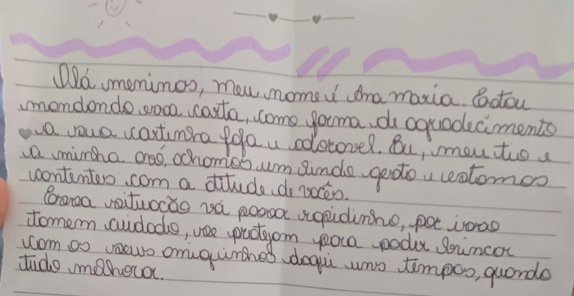 Olá meninos, meu nome é Ana Maria. Estou
mandando essa carta, como forma de agradecimento
a sua cartinha fofa e adorável. Eu, meu tio e
a minha avó, achamos um lindo gesto e estamos
contentes com a atitude de vocês.
Essa situação vá passar rapidinho, por isso
tomem cuidado, se protejam para poder brincar
com os seus amiguinhos daqui uns tempos, quando
tudo melhorar.